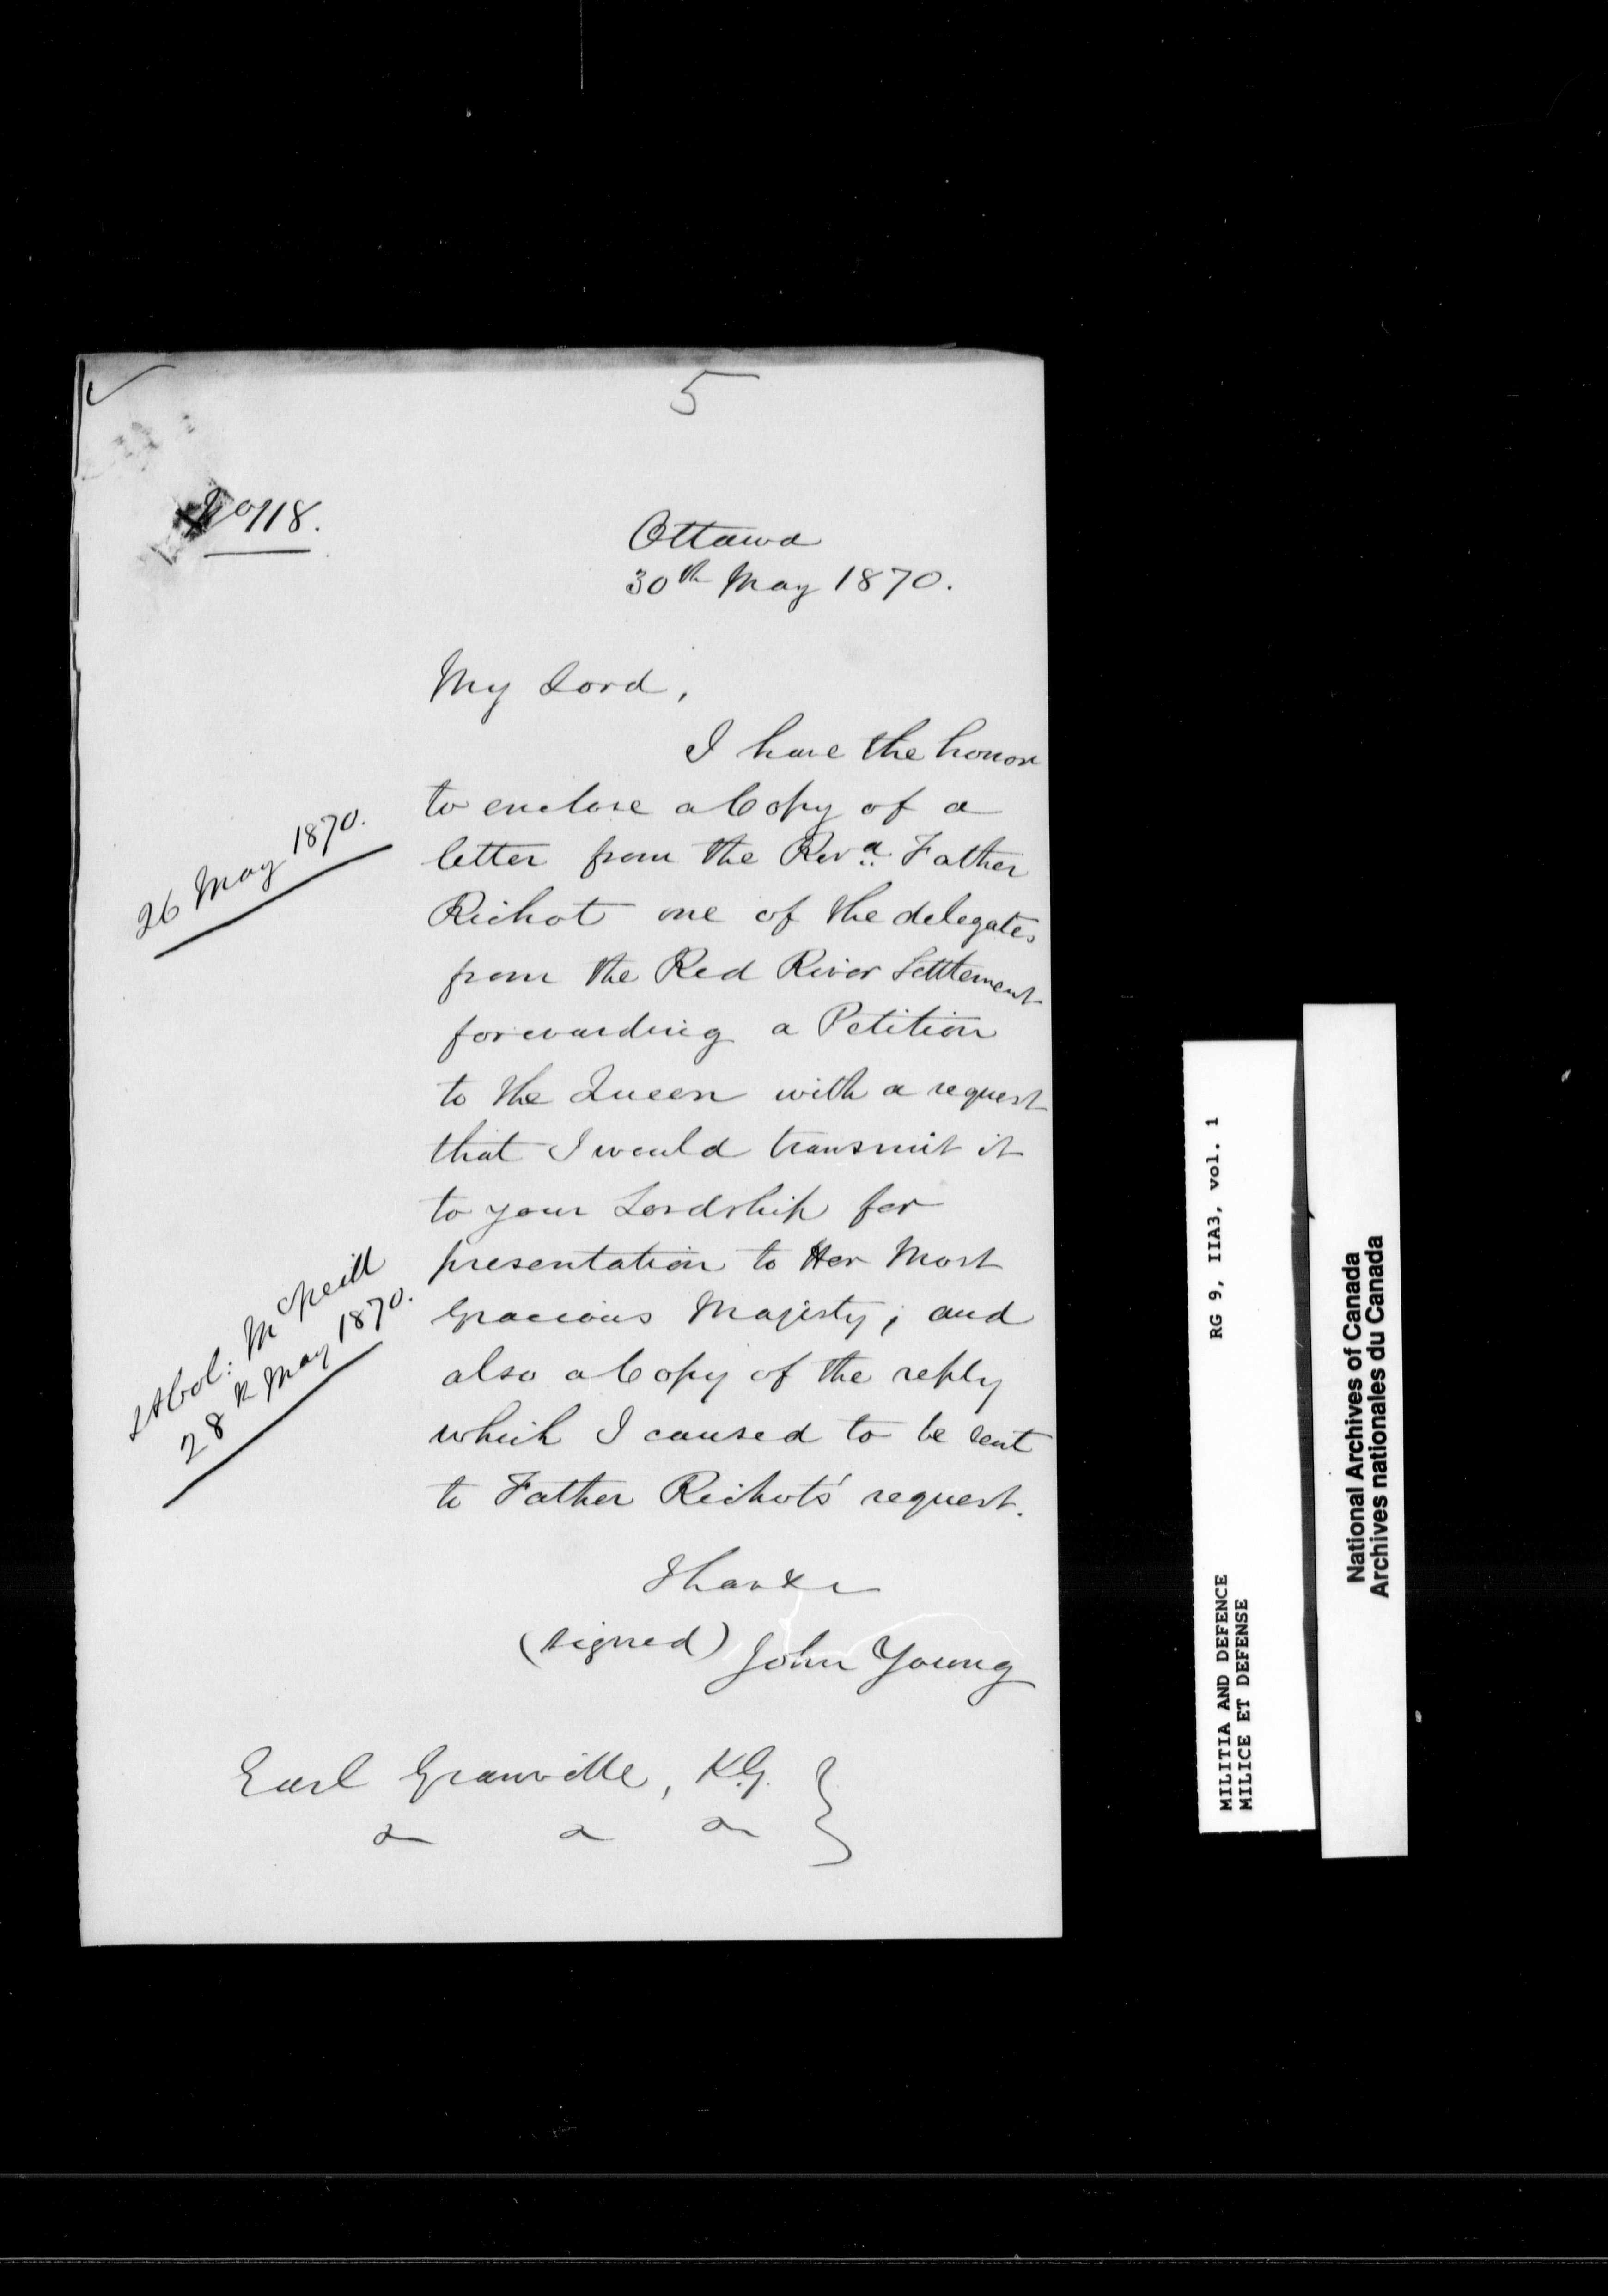 5
No 118.
Ottawa
30th May 1870.
My Lord,
I have the honor
to enclose a Copy of a
26 May 1870.
letter from the Revd. Father
Richot one of the delegates
from the Red River Settlement
forwarding a Petition
to the Queen with a request
that I would transmit it
to your Lordship for
presentation to Her Most
Gracious Majesty; and
Lt Col: McNeill
28th May 1870.
also a Copy of the reply
which I caused to be sent
to Father Richots' request.
I have &c
(signed) John Young
Earl Granville, K.G.
RG 9, IIA3, vol. 1
MILITIA AND DEFENCE
MILICE ET DEFENSE
National Archives of Canada
Archives nationales du Canada